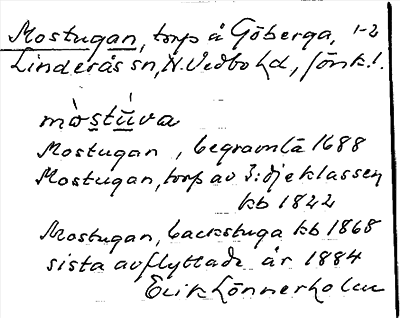 Mostugan, torp å Göberga, 1-2
Linderås sn, N. Vedbo hd, Jönk. l.
mòstúva
Mostugan, begravn.lä 1688
Mostugan, torp av 3:dje klassen
kb 1822
Mostugan, backstuga kb 1868
sista avflyttade år 1884
Erik Lönnerholm